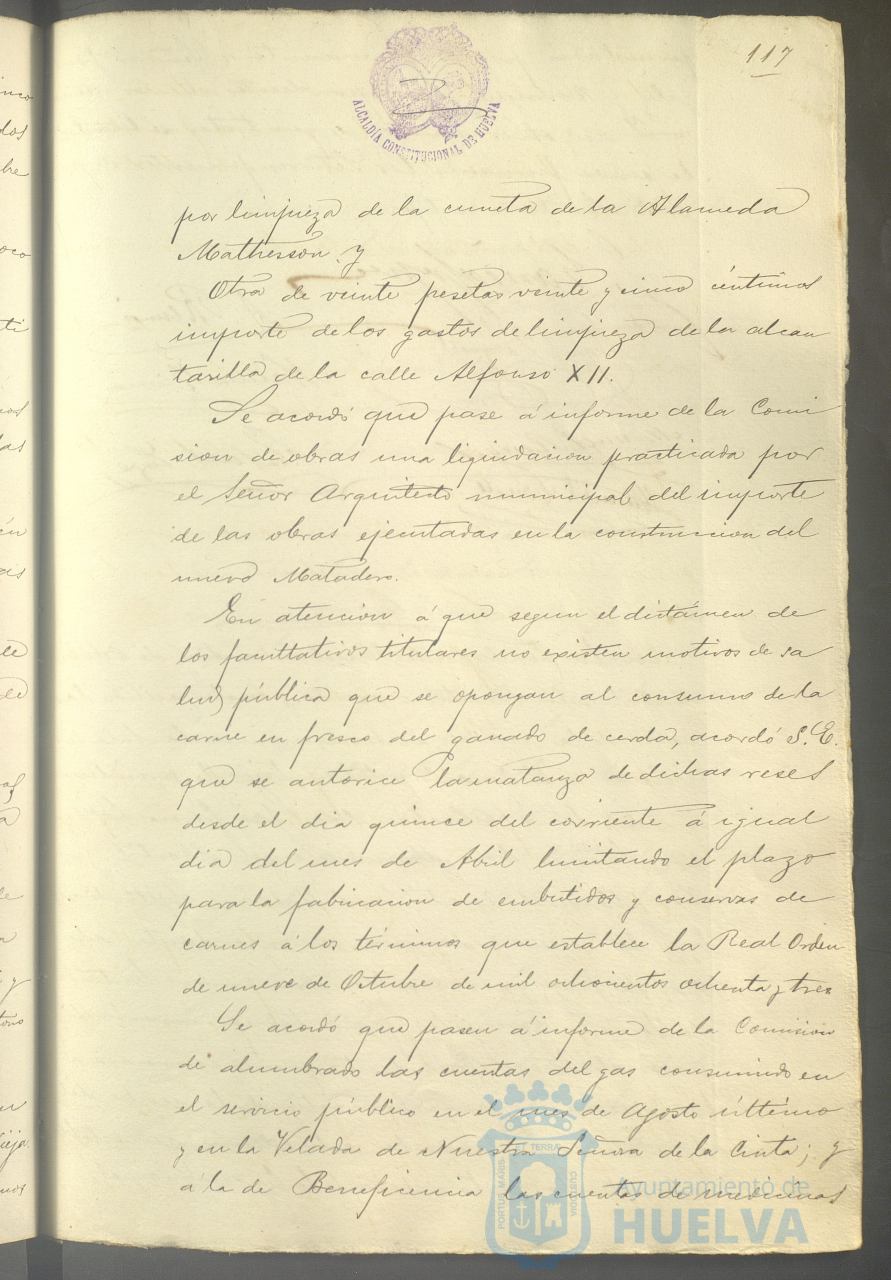 117
ALCALDIA CONSTITUCIONAL DE HUELVA
por limpieza de la cuneta de la Alameda
Mathesson y
Otra de veinte pesetas veinte y cinco céntimos
importe de los gastos de limpieza de la alcan
tarilla de la calle Alfonso XII.
Se acordó que pase á informe de la Comi
sion de obras una liquidacion practicada por
el Señor Arquitecto municipal del importe
de las obras ejecutadas en la construccion del
nuevo Matadero.
En atencion á que segun el dictámen de
los facultativos titulares no existen motivos de sa
lud pública que se opongan al consumo de la
carne en fresco del ganado de cerda, acordó S.E.
que se autorice la matanza de dichas reses
desde el dia quince del corriente á igual
dia del mes de Abril limitando el plazo
para la fabricacion de embutidos y conservas de
carnes á los términos que establece la Real Orden
de nueve de Octubre de mil ochocientos ochenta y tres
Se acordó que pasen á informe de la Comision
de alumbrado las cuentas del gas consumido en
el servicio público en el mes de Agosto último
y en la Velada de Nuestra Señora de la Cinta; y
á la de Beneficencia las cuentas de medicinas
PORTUS MARIS ET TERRAE CUSTODIA
Ayuntamiento de
HUELVA